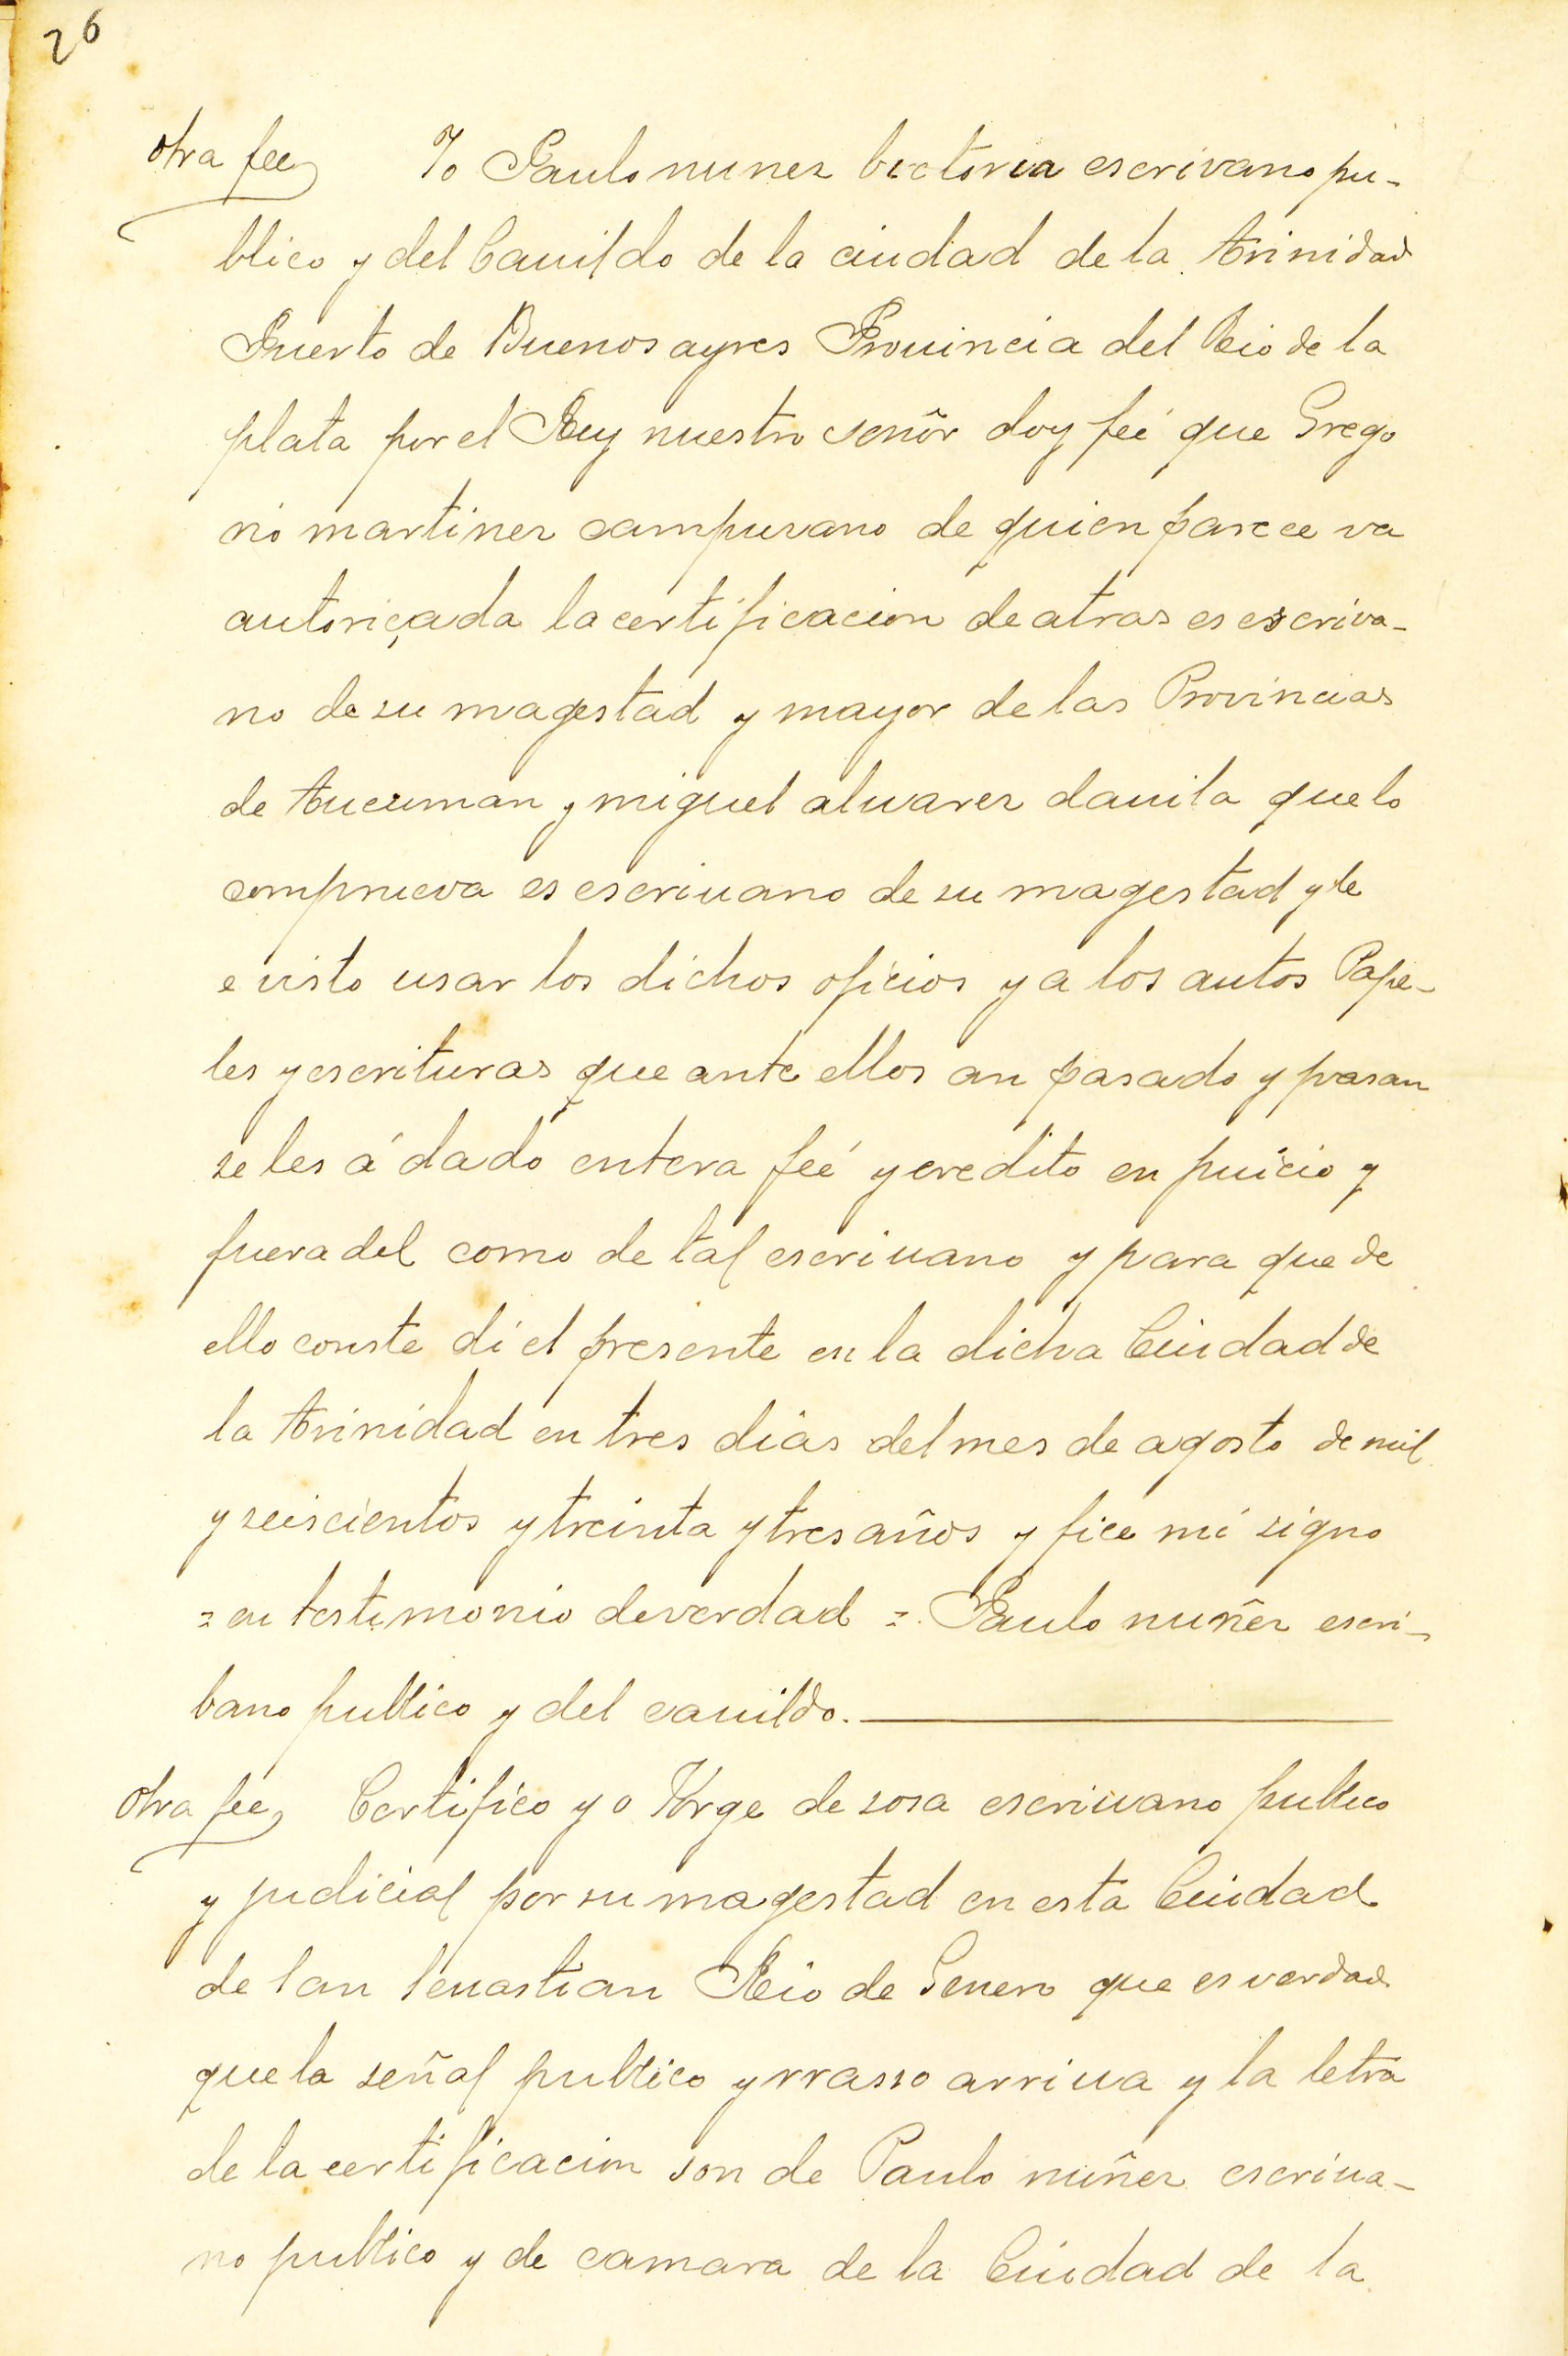 26
otra fee Yo Paulo nunez bectoria escrivano pu-
blico y del Cauildo de la ciudad de la trinidad
Puerto de Buenos ayres Prouincia del Rio de la
plata por el Rey nuestro señor doy feé que Grego
rio martinez campuzano de quien parece va
autoriçada la certificacion de atras es escriva-
no de su magestad y mayor de las Provincias
de tucuman y miguel aluarez dauila que lo
comprueva es escriuano de su magestad y le
e uisto usar los dichos oficios y a los autos Pape-
les y escrituras que ante ellos an pasado y pasan
se les á dado entera feé y credito en juicio y
fuera del como de tal escriuano y para que de
ello conste di el presente en la dicha Ciudad de
la trinidad en tres dias del mes de agosto de mil
y seiscientos y treinta y tres años y fice mi signo
= en testimonio de verdad = Paulo nuñez escri-
bano publico y del cauildo.
Otra fee Certifico yo Jorge de sosa escriuano publico
y judicial por su magestad en esta Ciudad
de san seuastian Rio de Genero que es verdad
que la señal publico y rrasso arriua y la letra
de la certificacion son de Paulo nuñez escriua-
no publico y de camara de la Ciudad de la